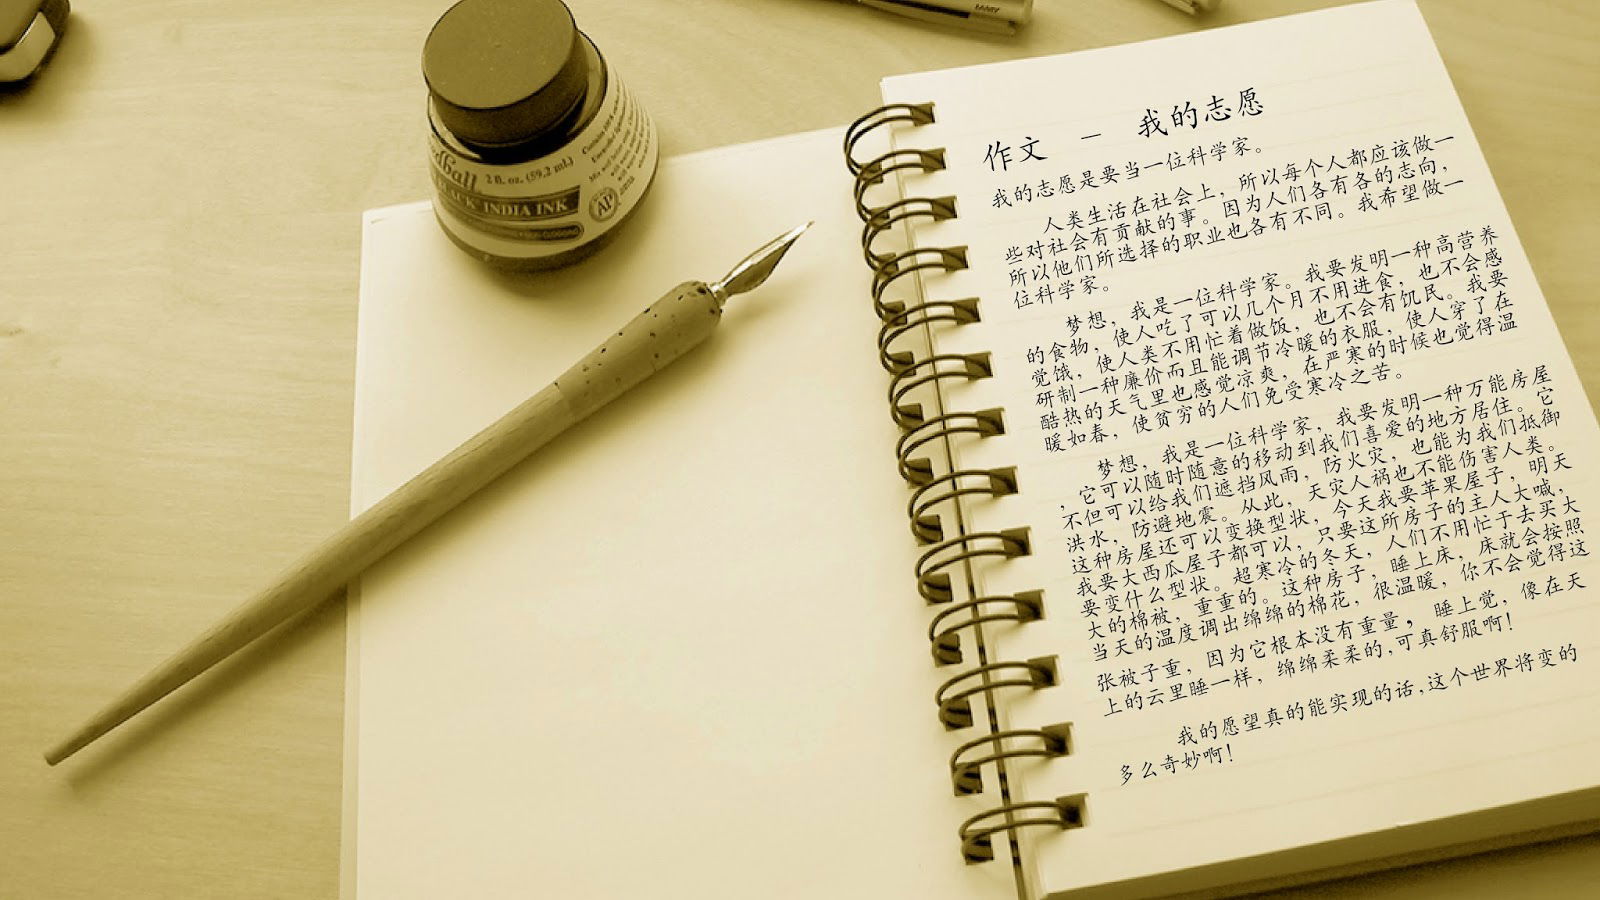 LAMY
2 fl. oz. (59.2 ml.)
BLACK INDIA INK
AP
作文 － 我的志愿
我的志愿是要当一位科学家。
人类生活在社会上，所以每个人都应该做一
些对社会有贡献的事。因为人们各有各的志向，
所以他们所选择的职业也各有不同。我希望做一
位科学家。
梦想，我是一位科学家。我要发明一种高营养
的食物，使人吃了可以几个月不用进食，也不会感
觉饿，使人类不用忙着做饭，也不会有饥民。我要
研制一种廉价而且能调节冷暖的衣服，使人穿了在
酷热的天气里也感觉凉爽，在严寒的时候也觉得温
暖如春，使贫穷的人们免受寒冷之苦。
梦想，我是一位科学家，我要发明一种万能房屋
，它可以随时随意的移动到我们喜爱的地方居住。它
不但可以给我们遮挡风雨，防火灾，也能为我们抵御
洪水，防避地震。从此，天灾人祸也不能伤害人类。
这种房屋还可以变换型状，今天我要苹果屋子，明天
我要大西瓜屋子都可以，只要这所房子的主人大喊，
要变什么型状。超寒冷的冬天，人们不用忙于去买大
大的棉被，重重的。这种房子，睡上床，床就会按照
当天的温度调出绵绵的棉花，很温暖，你不会觉得这
张被子重，因为它根本没有重量，睡上觉，像在天
上的云里睡一样，绵绵柔柔的,可真舒服啊！
我的愿望真的能实现的话,这个世界将变的
多么奇妙啊！